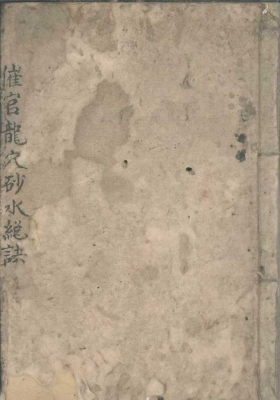 催官龍穴砂水總誌